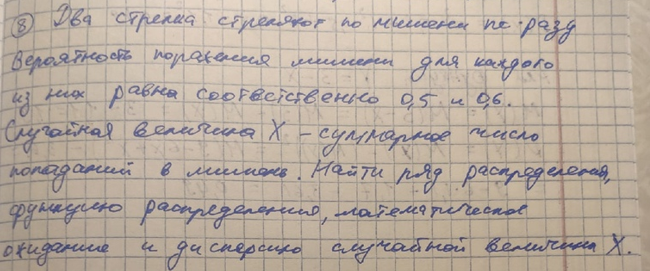 ⑧ Два стрелка стреляют по мишени по разу
Вероятность поражения мишени для каждого
из них равна соответственно 0,5 и 0,6.
Случайная величина X – суммарное число
попаданий в мишень. Найти ряд распределения,
функцию распределения, математическое
ожидание и дисперсию случайной величины X.